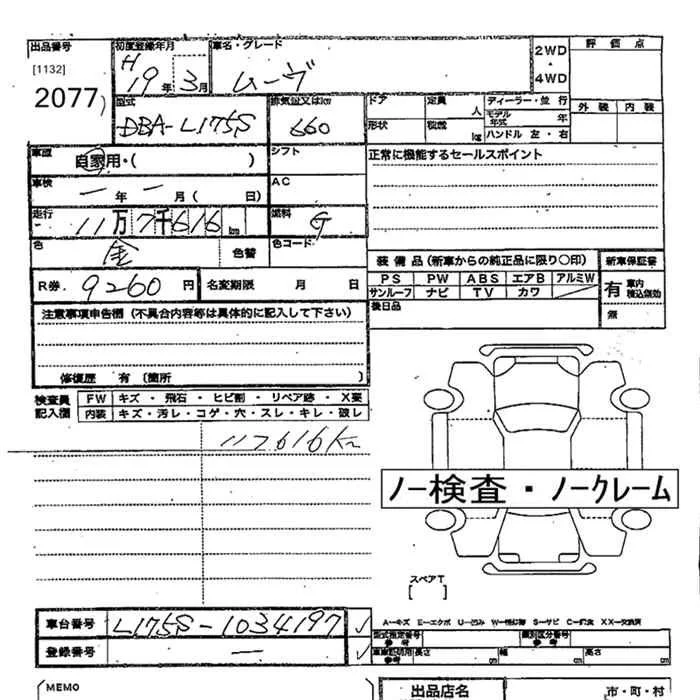 出品番号 初度登録年月 車名・グレード 2WD・4WD 評価点
[1132] H
2077 19年 3月 ムーヴ
型式 排気量又はkm ドア 定員 人 ディーラー・並行 外装 内装
DBA-L175S 660 形状 積載 kg モデル年式 年
ハンドル 左・右
車歴 自家用・( ) シフト 正常に機能するセールスポイント
車検 ー年 ー月( 日) AC
走行 11万7千616km 燃料 G
色 金 色替 色コード
装備品(新車からの純正品に限り○印) 新車保証書
R券. 9260円 名変期限 月 日 PS PW ABS エアB アルミW 有 車内積込個効
サンルーフ ナビ TV カワ
注意事項申告欄(不具合内容等は具体的に記入して下さい) 後日品 無
修復歴 有(箇所
検査員記入欄 FW キズ・飛石・ヒビ割・リペア跡・X要
内装 キズ・汚レ・コゲ・穴・スレ・キレ・破レ
117616km
ノー検査・ノークレーム
スペアT
[ ]
A-キズ E-エクボ U-凹ミ W-補修跡 S-サビ C-腐食 XX-交換済
車台番号 L175S-1034197 型式指定番号 参考 類別区分番号 参考
登録番号 ー 車庫証明用 参考 長さ cm 幅 cm 高さ cm
MEMO 出品店名 市・町・村